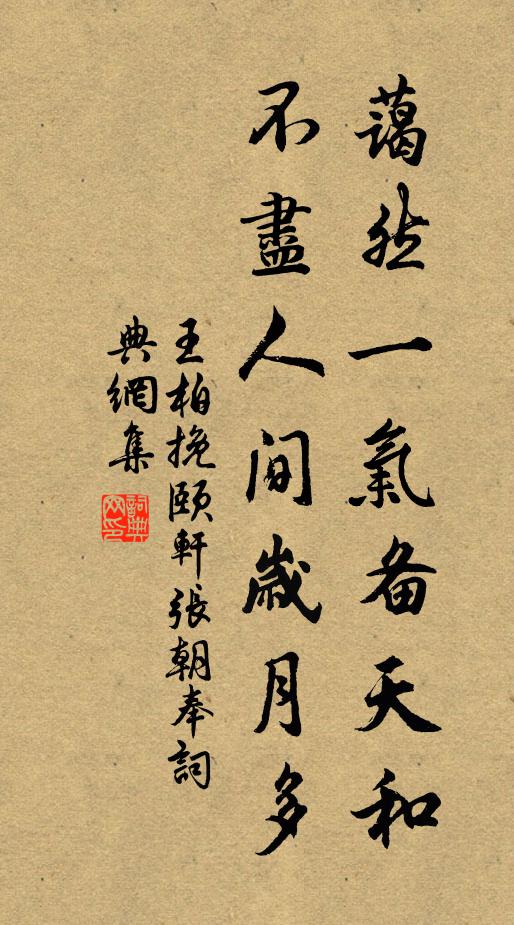 藹然一氣备天和
不盡人间歲月多
王柏挽頤軒張朝奉詞
典網集
詞典
网印